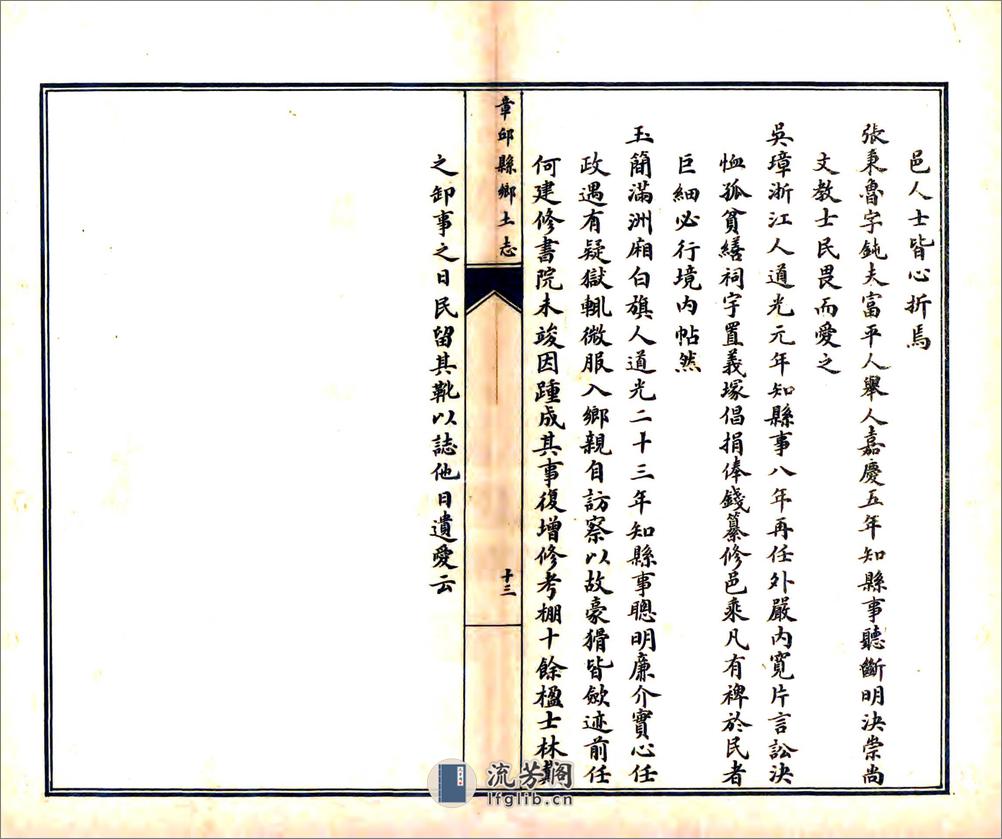 邑人士皆心折焉
張秉魯字鈍夫富平人舉人嘉慶五年知縣事聽斷明決崇尚
文教士民畏而愛之
吳璋浙江人道光元年知縣事八年再任外嚴內寬片言訟決
恤孤貧繕祠宇置義塚倡捐俸錢纂修邑乘凡有裨於民者
巨細必行境內帖然
玉簡滿洲廂白旗人道光二十三年知縣事聰明廉介實心任
政遇有疑獄輒微服入鄉親自訪察以故豪猾皆斂迹前任
何建修書院未竣因踵成其事復增修考棚十餘楹士林戴
章邱縣鄉土志
十三
之卸事之日民留其靴以誌他日遺愛云
流芳閣
lfglib.cn